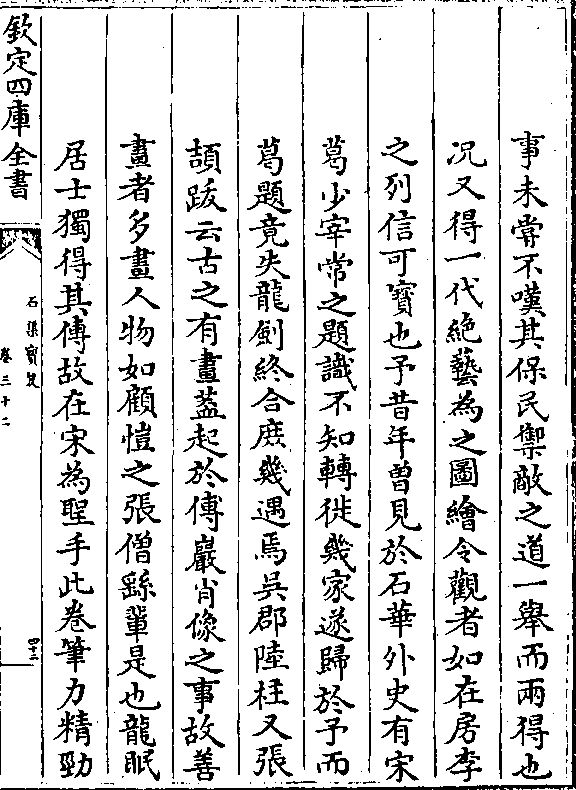 事未嘗不嘆其保民禦敵之道一舉而兩得也
况又得一代絶藝為之圖繪令觀者如在房李
之列信可寶也予昔年曽見於石華外史有宋
葛少宰常之題識不知轉徙幾家遂歸於予而
葛題竟失龍劍終合庶幾遇焉吳郡陸枉又張
頡跋云古之有畫葢起於傅巖肖像之事故善
畫者多畫人物如顧愷之張僧繇輩是也龍眠
居士獨得其傳故在宋為聖手此卷筆力精勁
欽定四庫全書
石渠寳笈
卷三十二
四十二